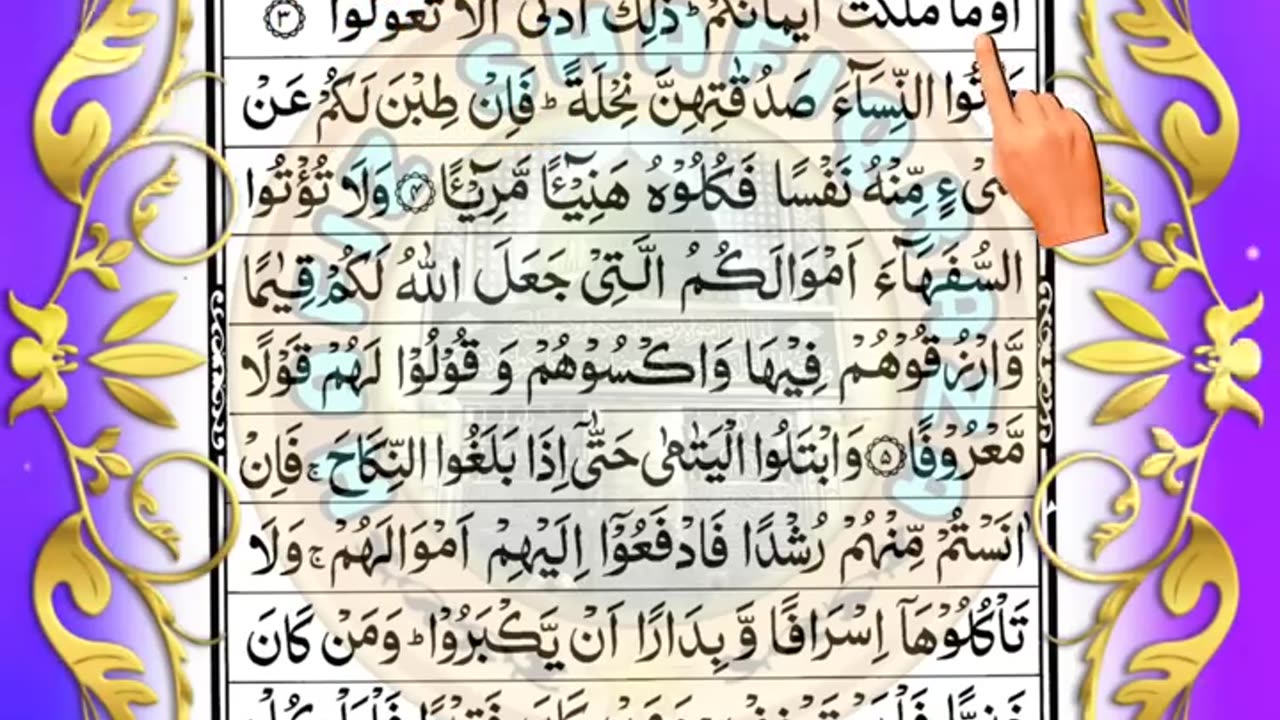 اَوْ مَا مَلَكَتْ اَيْمَانُكُمْ ؕ ذٰلِكَ اَدْنٰۤى اَلَّا تَعُوْلُوْا ۝۳
وَاٰتُوا النِّسَآءَ صَدُقٰتِهِنَّ نِحْلَةً ؕ فَاِنْ طِبْنَ لَكُمْ عَنْ
شَیْءٍ مِّنْهُ نَفْسًا فَكُلُوْهُ هَنِیْٓـًٔا مَّرِیْٓـًٔا ۝۴ وَلَا تُؤْتُوا
السُّفَهَآءَ اَمْوَالَكُمُ الَّتِیْ جَعَلَ اللّٰهُ لَكُمْ قِیٰمًا
وَّارْزُقُوْهُمْ فِیْهَا وَاكْسُوْهُمْ وَ قُوْلُوْا لَهُمْ قَوْلًا
مَّعْرُوْفًا ۝۵ وَابْتَلُوا الْیَتٰمٰی حَتّٰۤی اِذَا بَلَغُوا النِّكَاحَ ۚ فَاِنْ
اٰنَسْتُمْ مِّنْهُمْ رُشْدًا فَادْفَعُوْۤا اِلَیْهِمْ اَمْوَالَهُمْ ۚ وَلَا
تَاْكُلُوْهَاۤ اِسْرَافًا وَّ بِدَارًا اَنْ یَّكْبَرُوْا ؕ وَمَنْ كَانَ